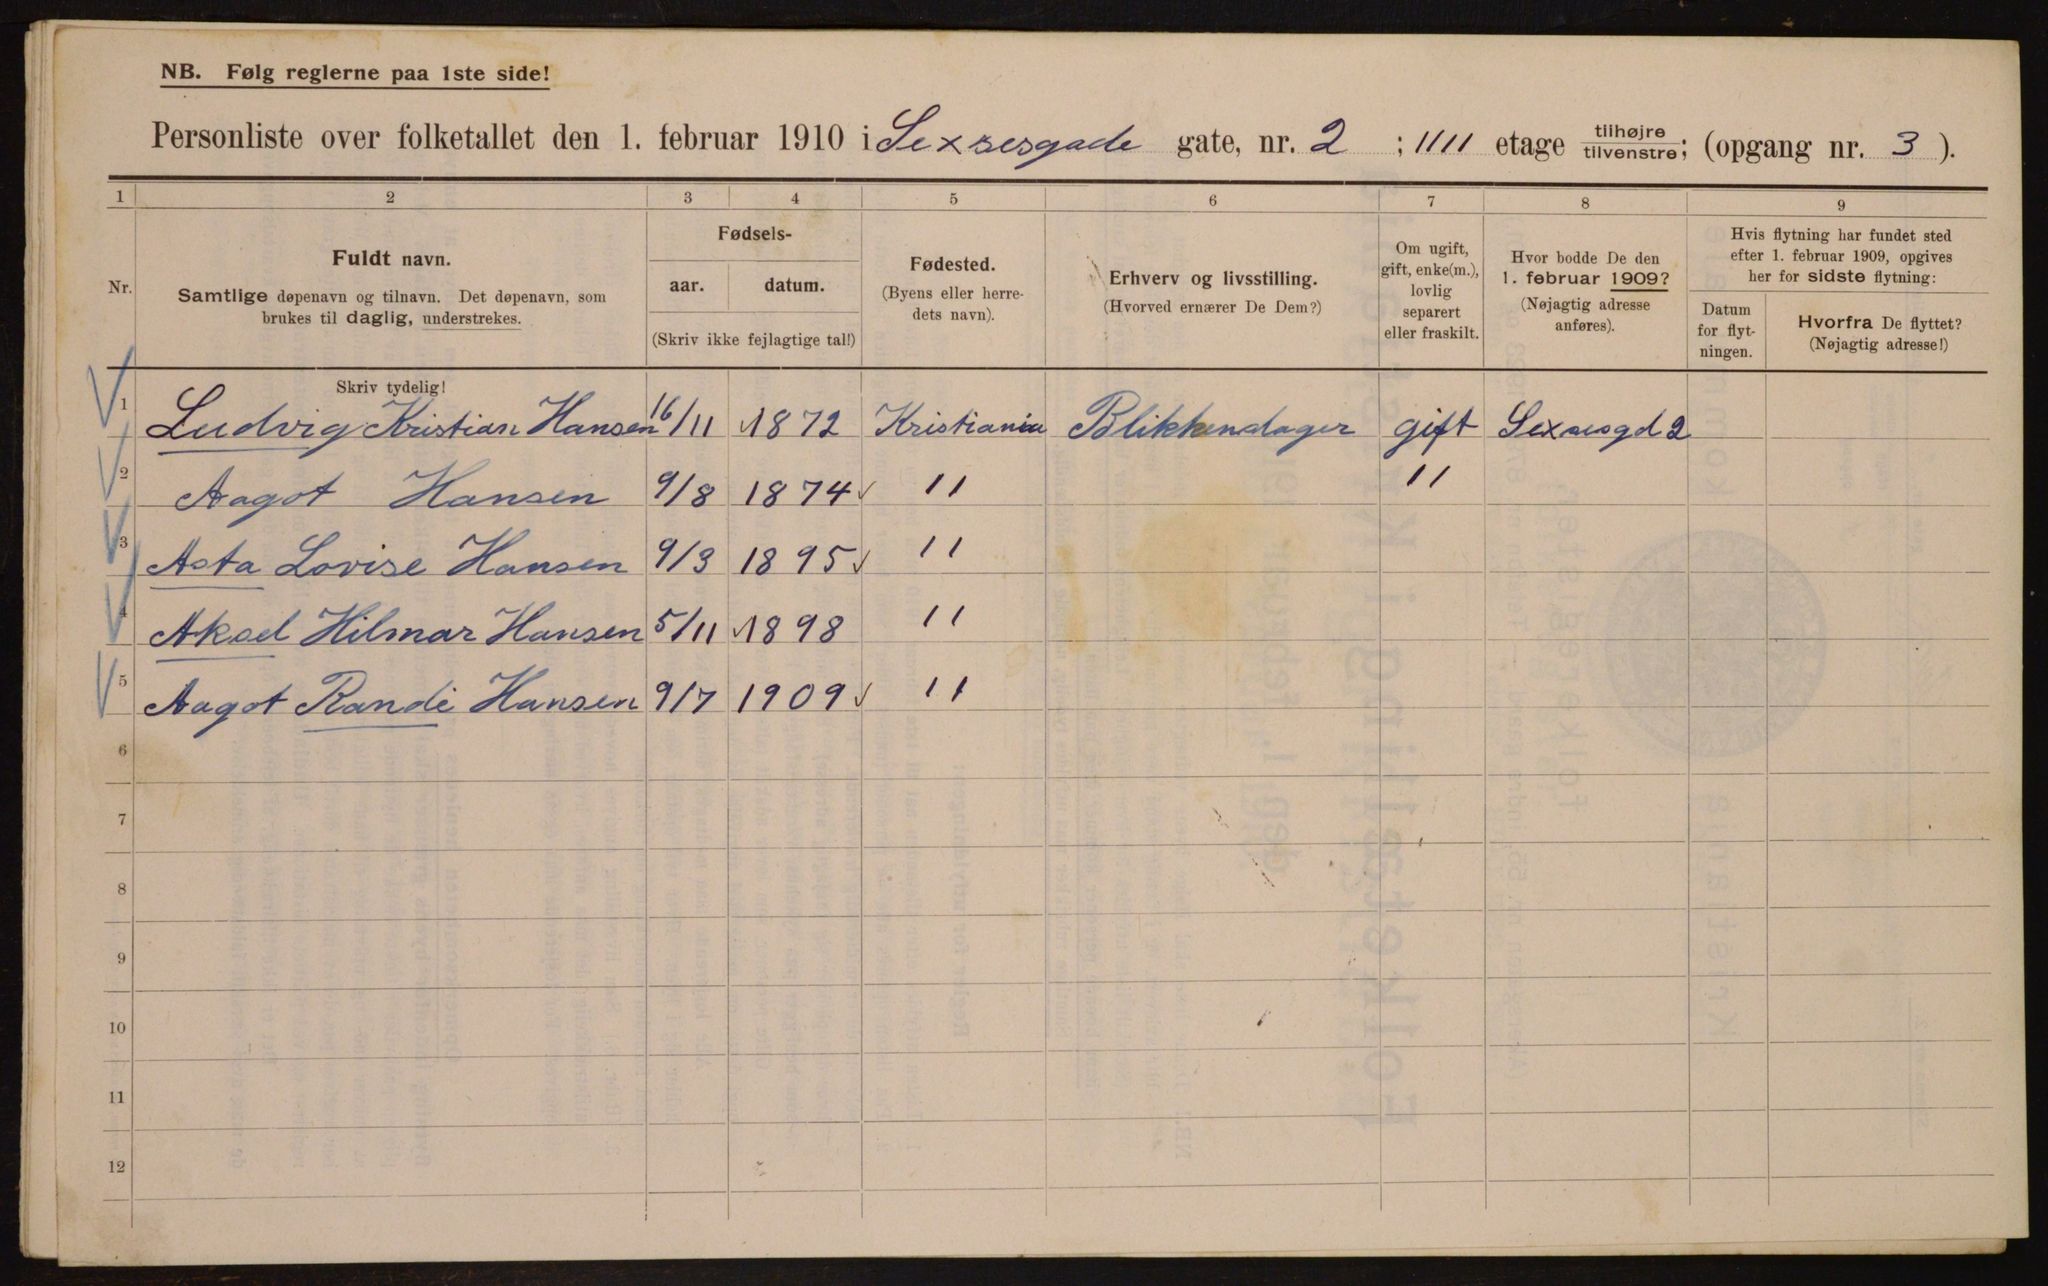 NB. Følg reglerne paa 1ste side!
Personliste over folketallet den 1. februar 1910 i Sexsesgade gate, nr. 2 ; 1111 etage tilhøjre/tilvenstre; (opgang nr. 3 ).
1 2 3 4 5 6 7 8 9
Nr.
Fuldt navn.
Samtlige døpenavn og tilnavn. Det døpenavn, som
brukes til daglig, understrekes.
Skriv tydelig!
Fødsels-
aar. datum.
(Skriv ikke fejlagtige tal!)
Fødested.
(Byens eller herre-
dets navn).
Erhverv og livsstilling.
(Hvorved ernærer De Dem?)
Om ugift,
gift, enke(m.),
lovlig
separert
eller fraskilt.
Hvor bodde De den
1. februar 1909?
(Nøjagtig adresse
anføres).
Hvis flytning har fundet sted
efter 1. februar 1909, opgives
her for sidste flytning:
Datum
for flyt-
ningen.
Hvorfra De flyttet?
(Nøjagtig adresse!)
1 Ludvig Kristian Hansen 16/11 1872 Kristiania Blikkendager gift Sexsesgd 2
2 Aagot Hansen 9/8 1874 11 11
3 Asta Lovise Hansen 9/3 1895 11
4 Aksel Hilmar Hansen 5/11 1898 11
5 Aagot Randi Hansen 9/7 1909 11
6
7
8
9
10
11
12